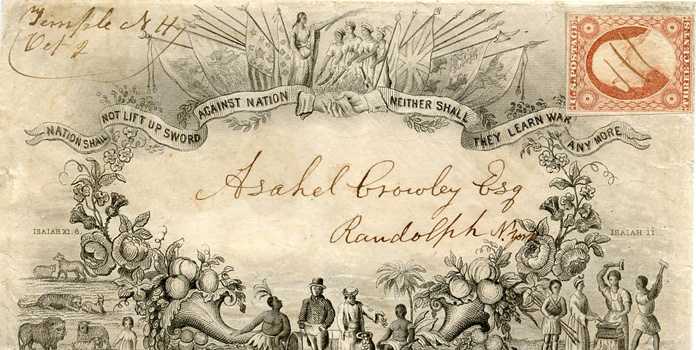 Temple N. H.
Oct 9
U.S. POSTAGE
NATION SHALL NOT LIFT UP SWORD AGAINST NATION NEITHER SHALL THEY LEARN WAR ANY MORE
Asahel Crowley Esq
Randolph N. York
ISAIAH XI. 6.
ISAIAH II